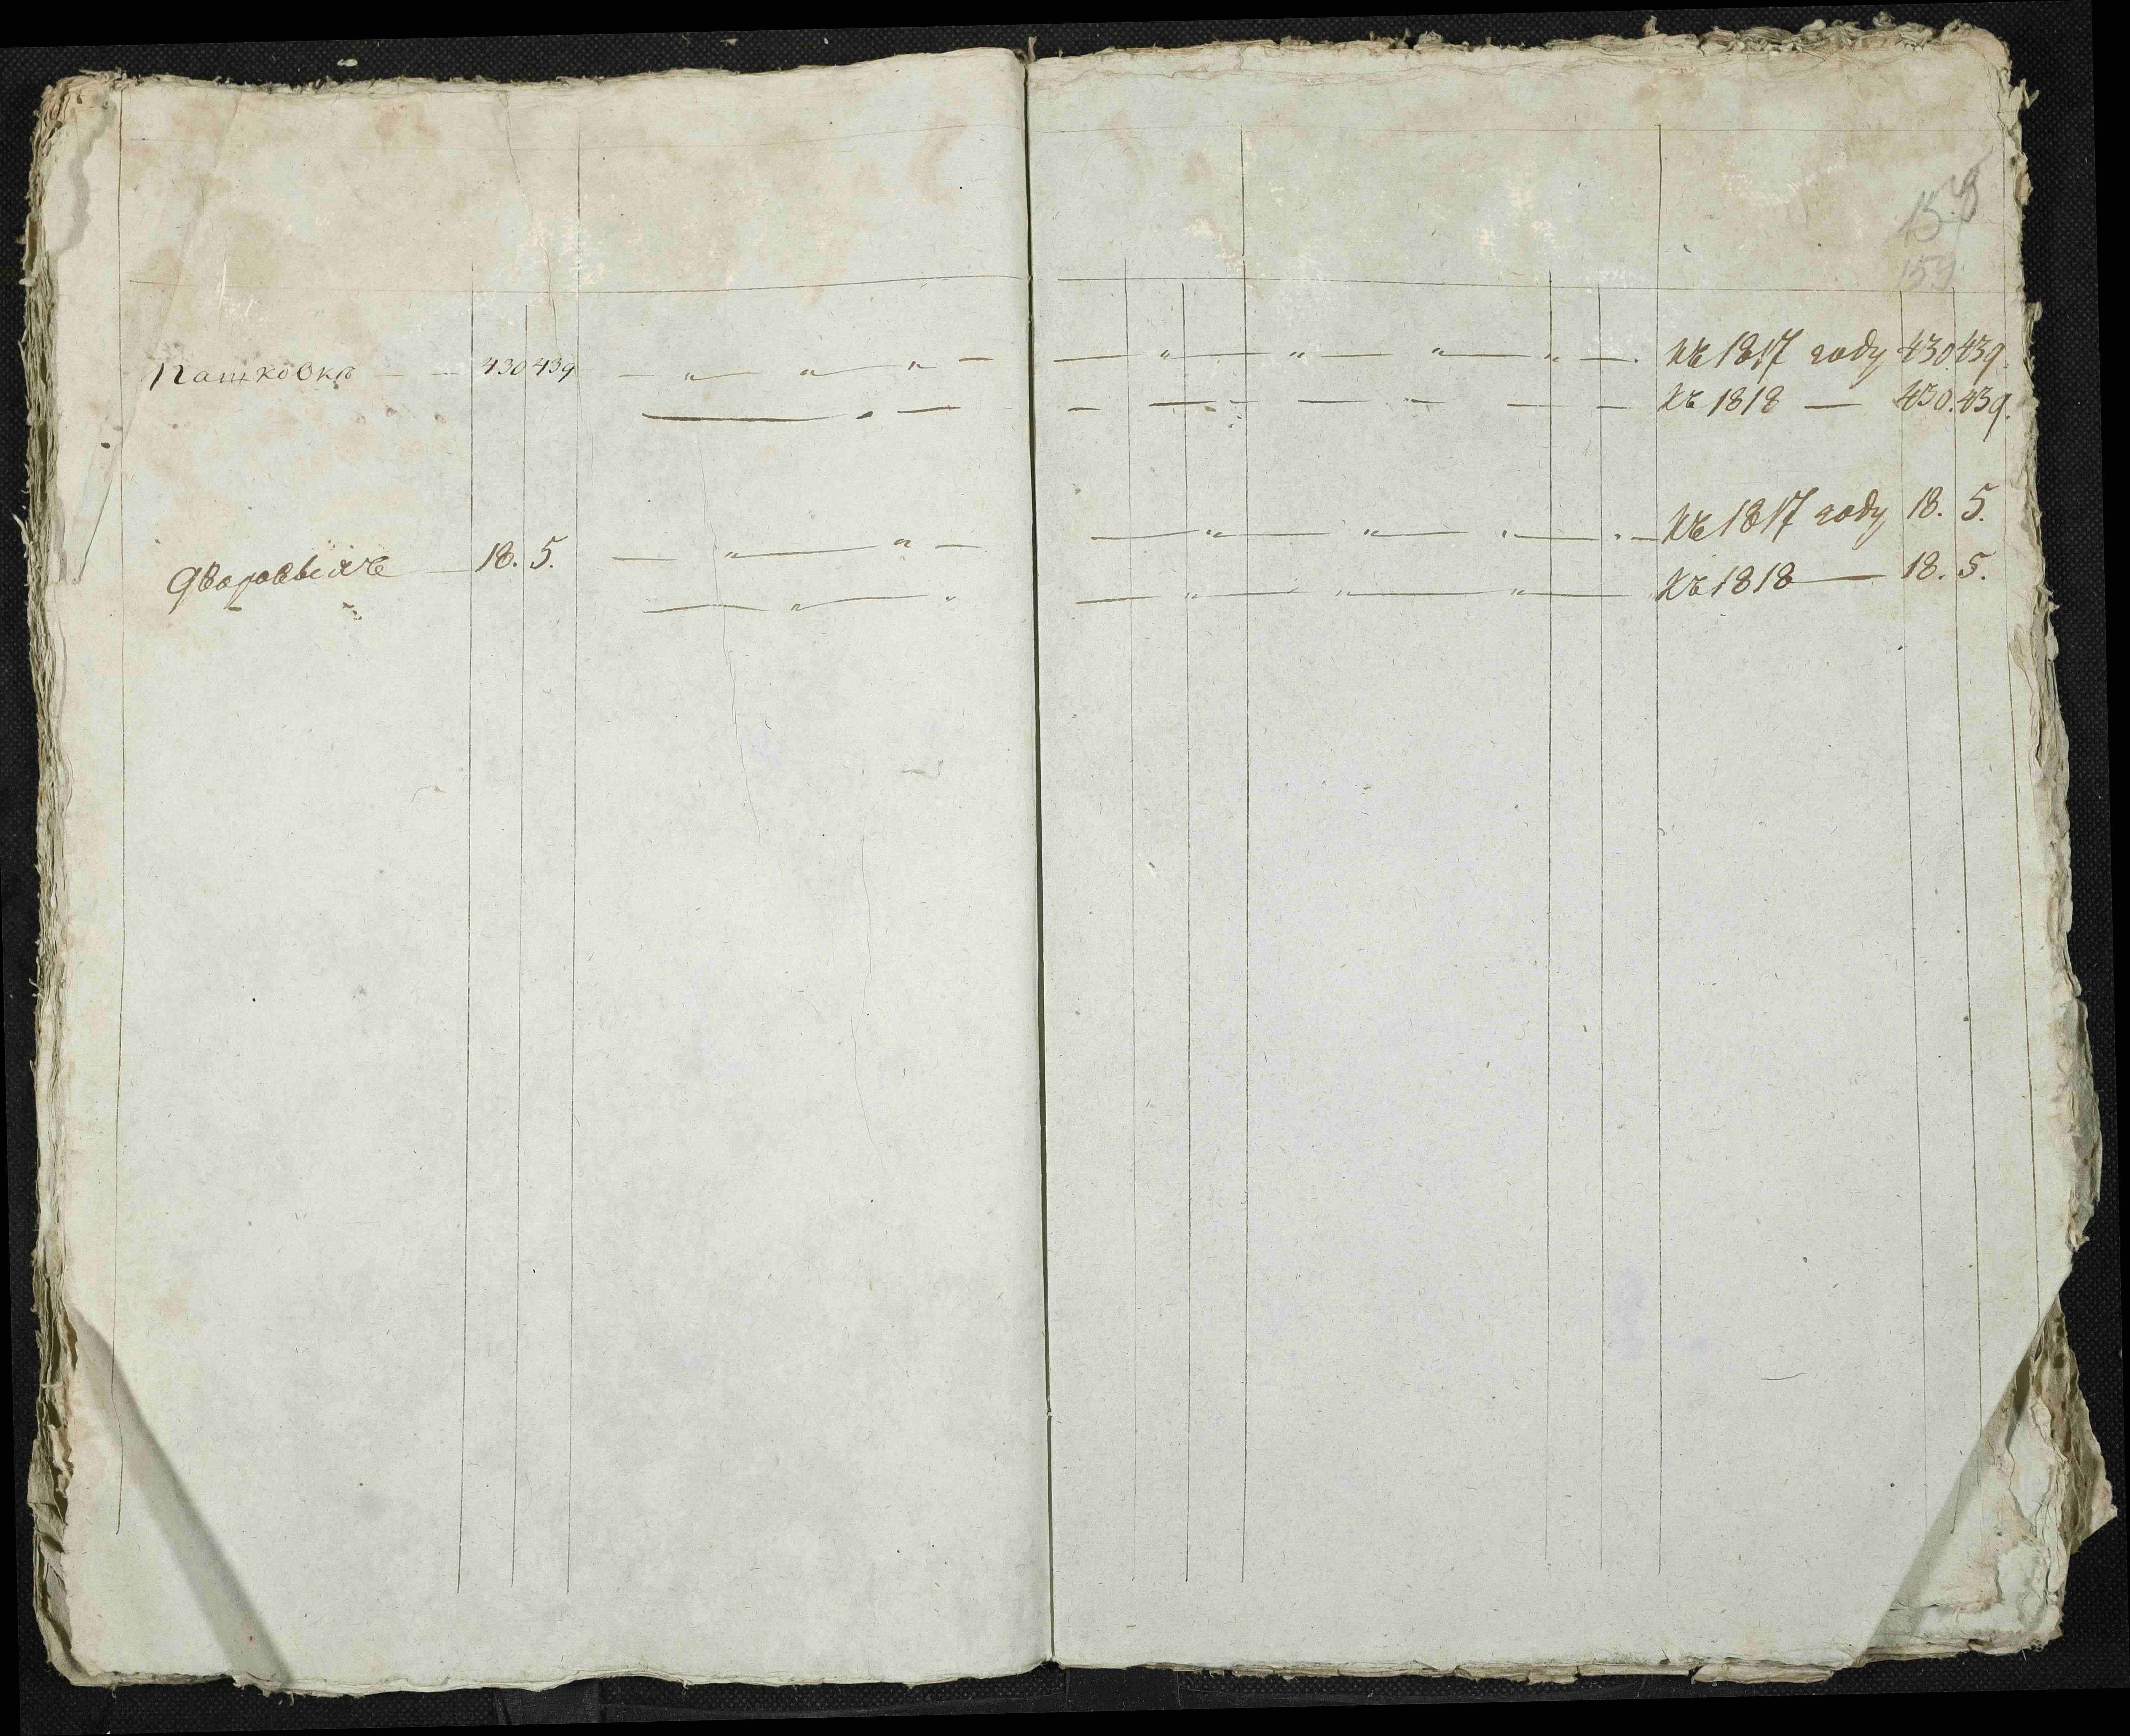 158
159
Пашковкѣ — — 430 439 — „ — „ — „ — — „ — „ — „ — „ — . къ 1817 году 430. 439.
къ 1818 — 430. 439.
Дворовыхъ — 18. 5. — „ — „ — — „ — „ — къ 1817 году 18. 5.
— „ — „ — „ — „ — „ — къ 1818 — 18. 5.